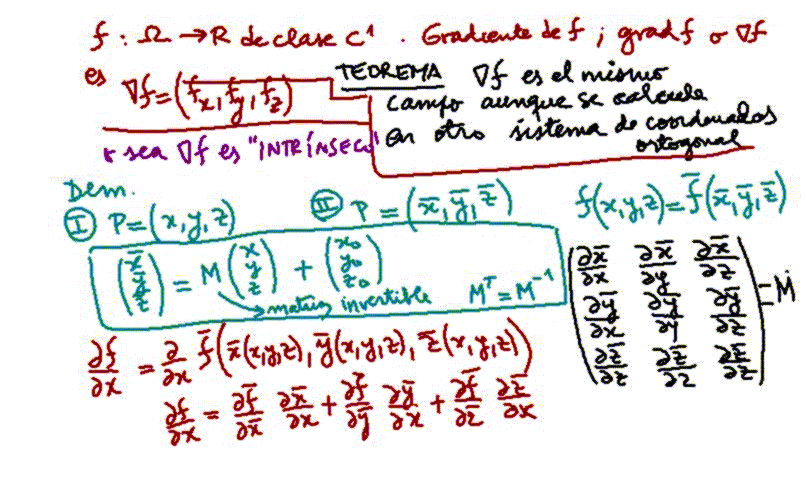 f : Ω → R de clase C¹ . Gradiente de f ; grad f o ∇f
es ∇f = (f_x, f_y, f_z)
TEOREMA ∇f es el mismo
campo aunque se calcule
en otro sistema de coordenadas
ortogonal
o sea ∇f es "INTRÍNSECO"
Dem.
I P = (x, y, z) II P = (x̄, ȳ, z̄) f(x,y,z) = f̄(x̄, ȳ, z̄)
(x̄ ȳ z̄) = M (x y z) + (x₀ y₀ z₀)
matriz invertible Mᵀ = M⁻¹
∂x̄/∂x ∂x̄/∂y ∂x̄/∂z
∂ȳ/∂x ∂ȳ/∂y ∂ȳ/∂z = M
∂z̄/∂z ∂z̄/∂z ∂z̄/∂z
∂f/∂x = ∂/∂x f̄(x̄(x,y,z), ȳ(x,y,z), z̄(x,y,z))
∂f/∂x = ∂f̄/∂x̄ ∂x̄/∂x + ∂f̄/∂ȳ ∂ȳ/∂x + ∂f̄/∂z̄ ∂z̄/∂x